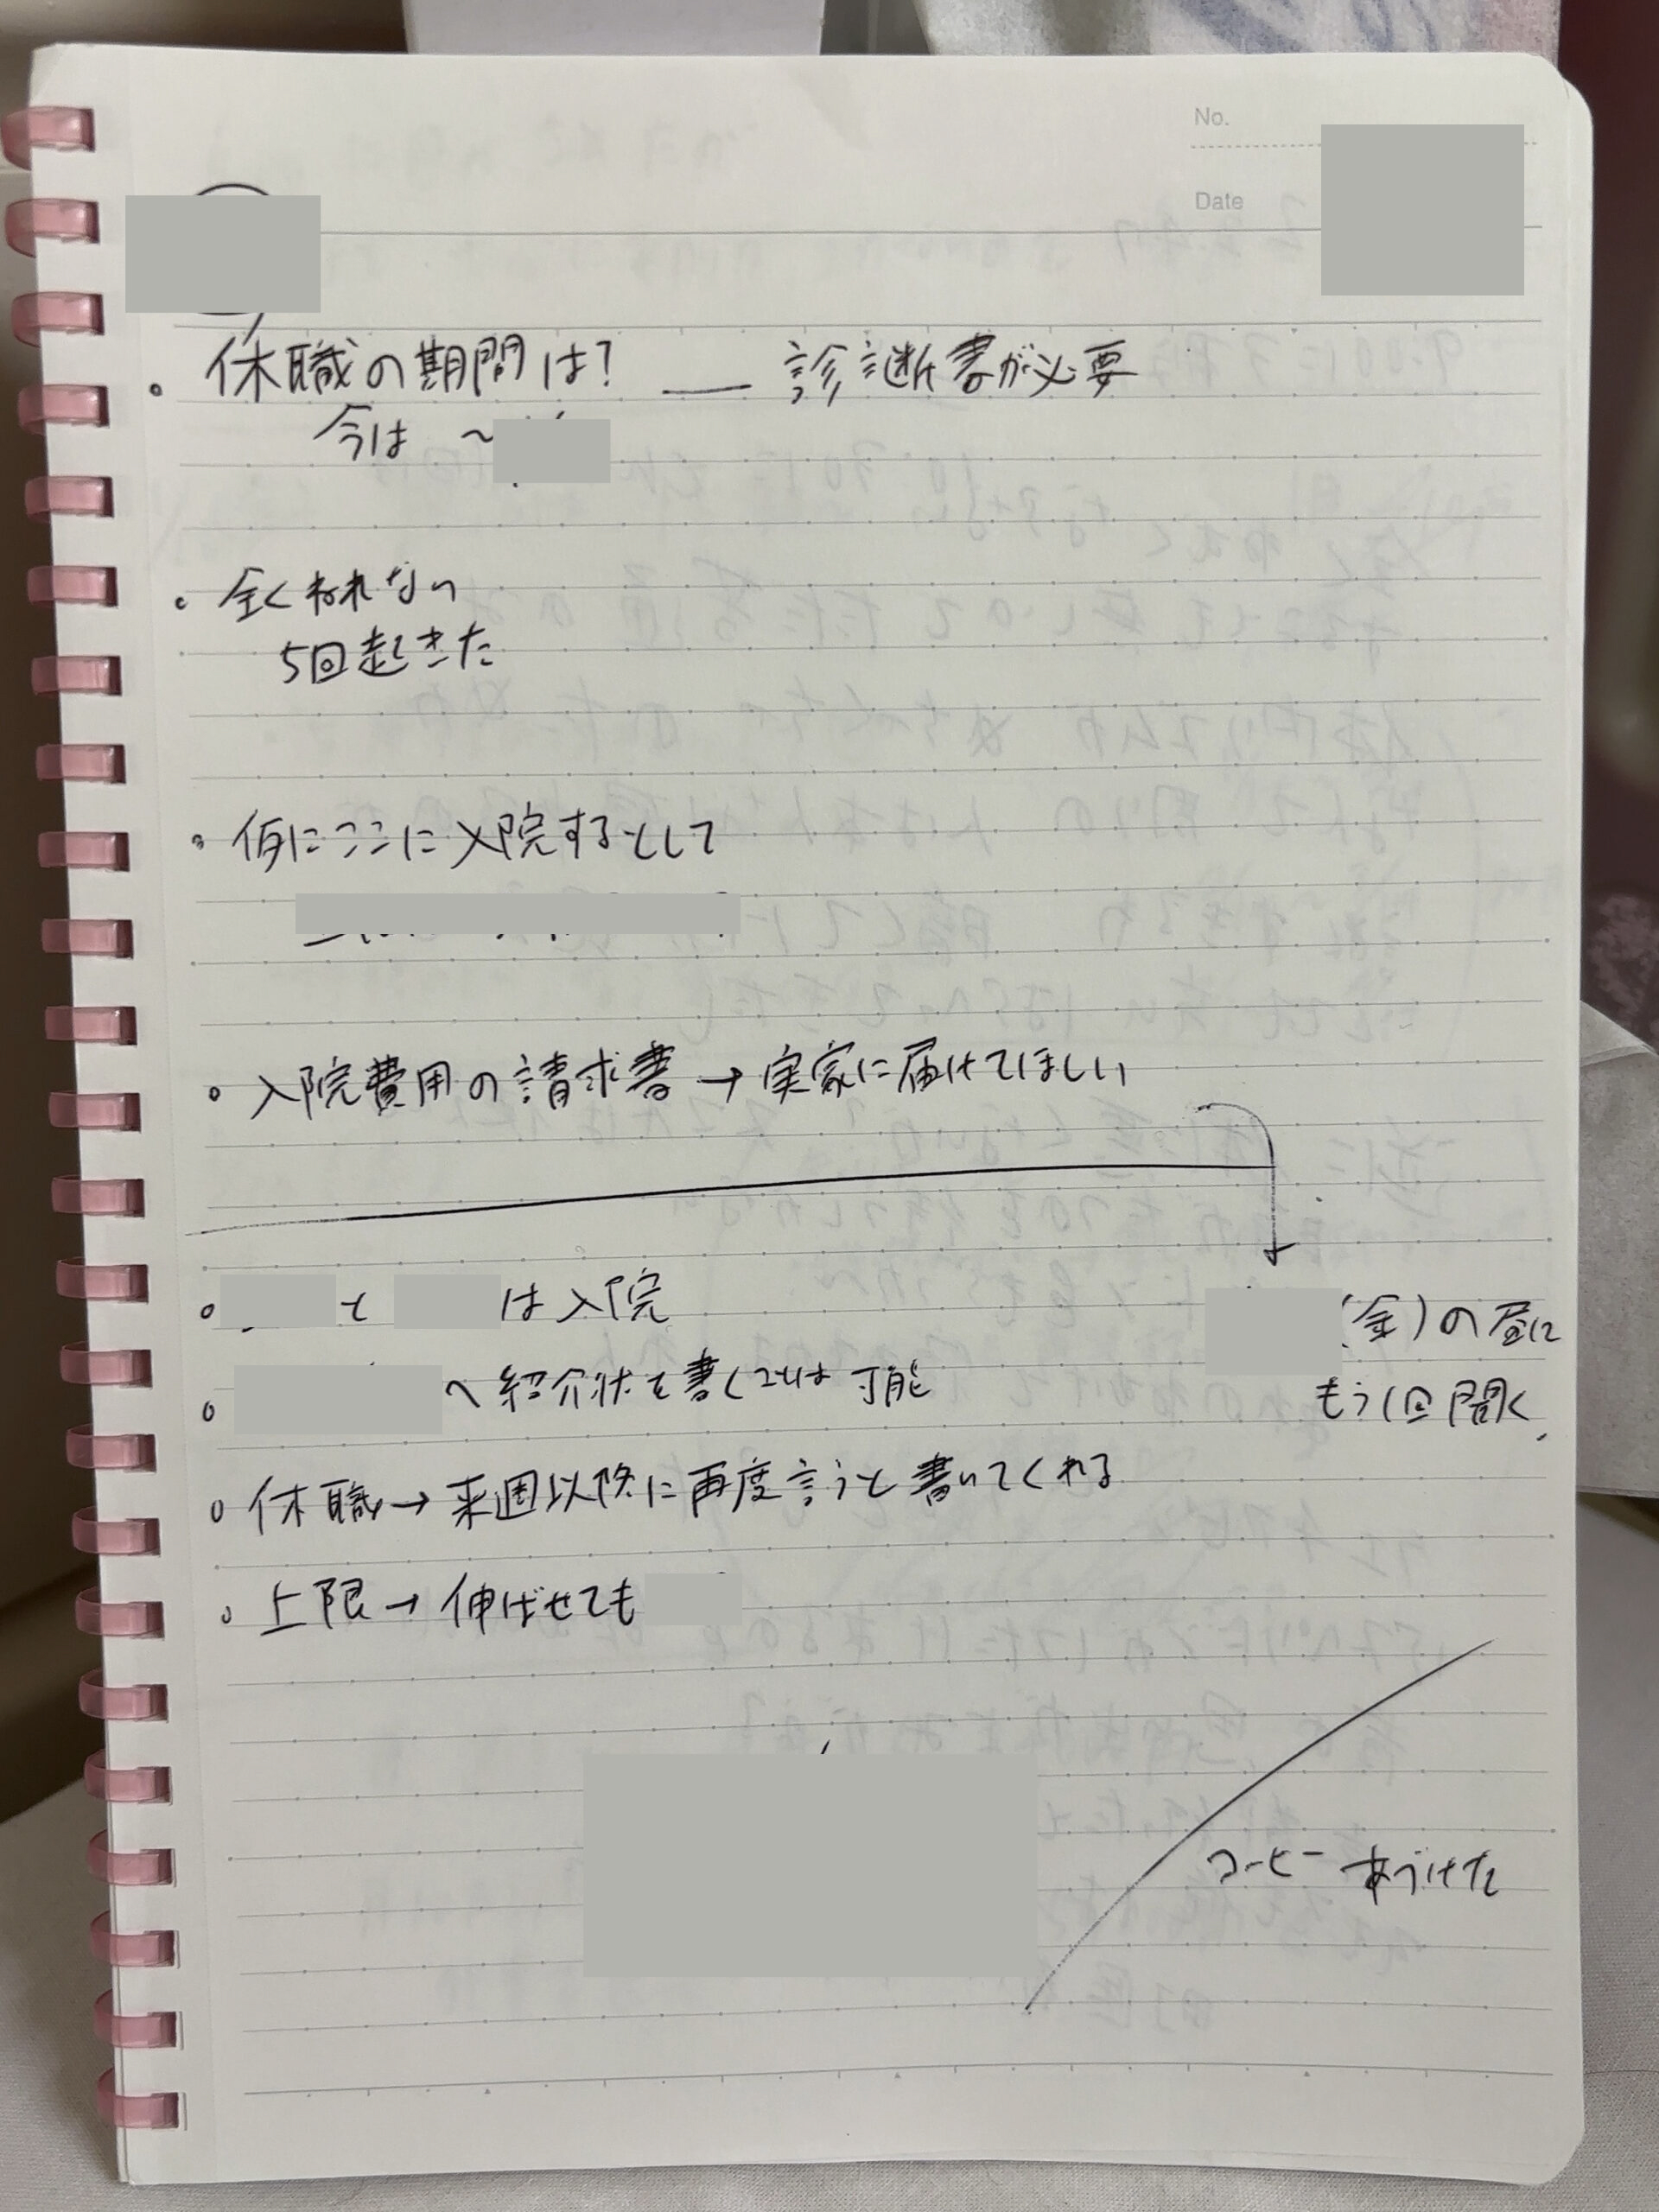 No.
Date
・休職の期間は? — 診断書が必要
今は ~
・全くねれない
5回起きた
・仮にここに入院するとして
・入院費用の請求書→実家に届けてほしい
・ と は入院
(金)の昼に
もう1回聞く
・ へ紹介状を書くことは可能
・休職→来週以降に再度言うと書いてくれる
・上限→伸ばせても
コーヒー